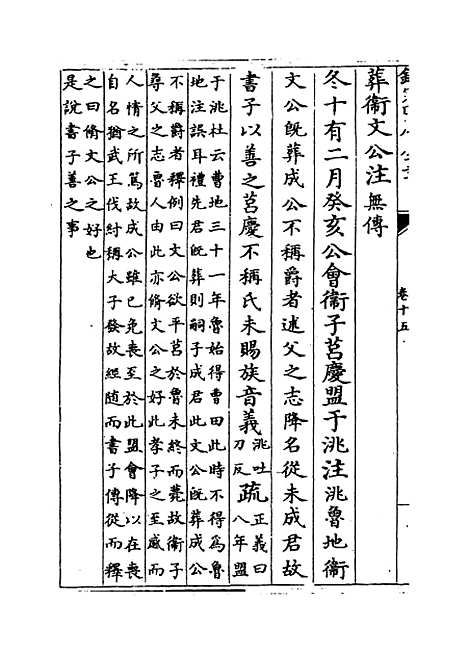 葬衞文公注無傳
冬十有二月癸亥公會衞子莒慶盟于洮注洮魯地衞
文公既葬成公不稱爵者述父之志降名從未成君故
書子以善之莒慶不稱氏未賜族音義洮吐刀反疏正義曰八年盟
于洮杜云曹地三十一年魯始得曹田此時不得為魯
地注誤耳禮先君既葬則嗣子成君此文公既葬成公
不稱爵者釋例曰文公欲平莒於魯未終而薨故衞子
尋父之志魯人由此亦脩文公之好此孝子之至感而
人情之所篤故成公雖已免喪至於此盟會降以在喪
自名猶武王伐紂稱大子發故經随而書子傳從而釋
之曰脩文公之好也
是說書子善之事
卷十五